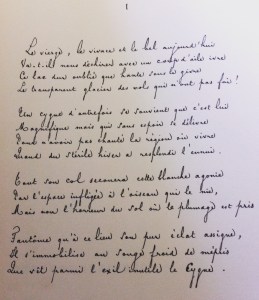 1
Le vierge, le vivace et le bel aujourd'hui
Va-t-il nous déchirer avec un coup d'aile ivre
Ce lac dur oublié que hante sous le givre
Le transparent glacier des vols qui n'ont pas fui !
Un cygne d'autrefois se souvient que c'est lui
Magnifique mais qui sans espoir se délivre
Pour n'avoir pas chanté la région où vivre
Quand du stérile hiver a resplendi l'ennui.
Tout son col secouera cette blanche agonie
Par l'espace infligée à l'oiseau qui le nie,
Mais non l'horreur du sol où le plumage est pris
Fantôme qu'à ce lieu son pur éclat assigne,
Il s'immobilise au songe froid de mépris
Que vêt parmi l'exil inutile le Cygne.